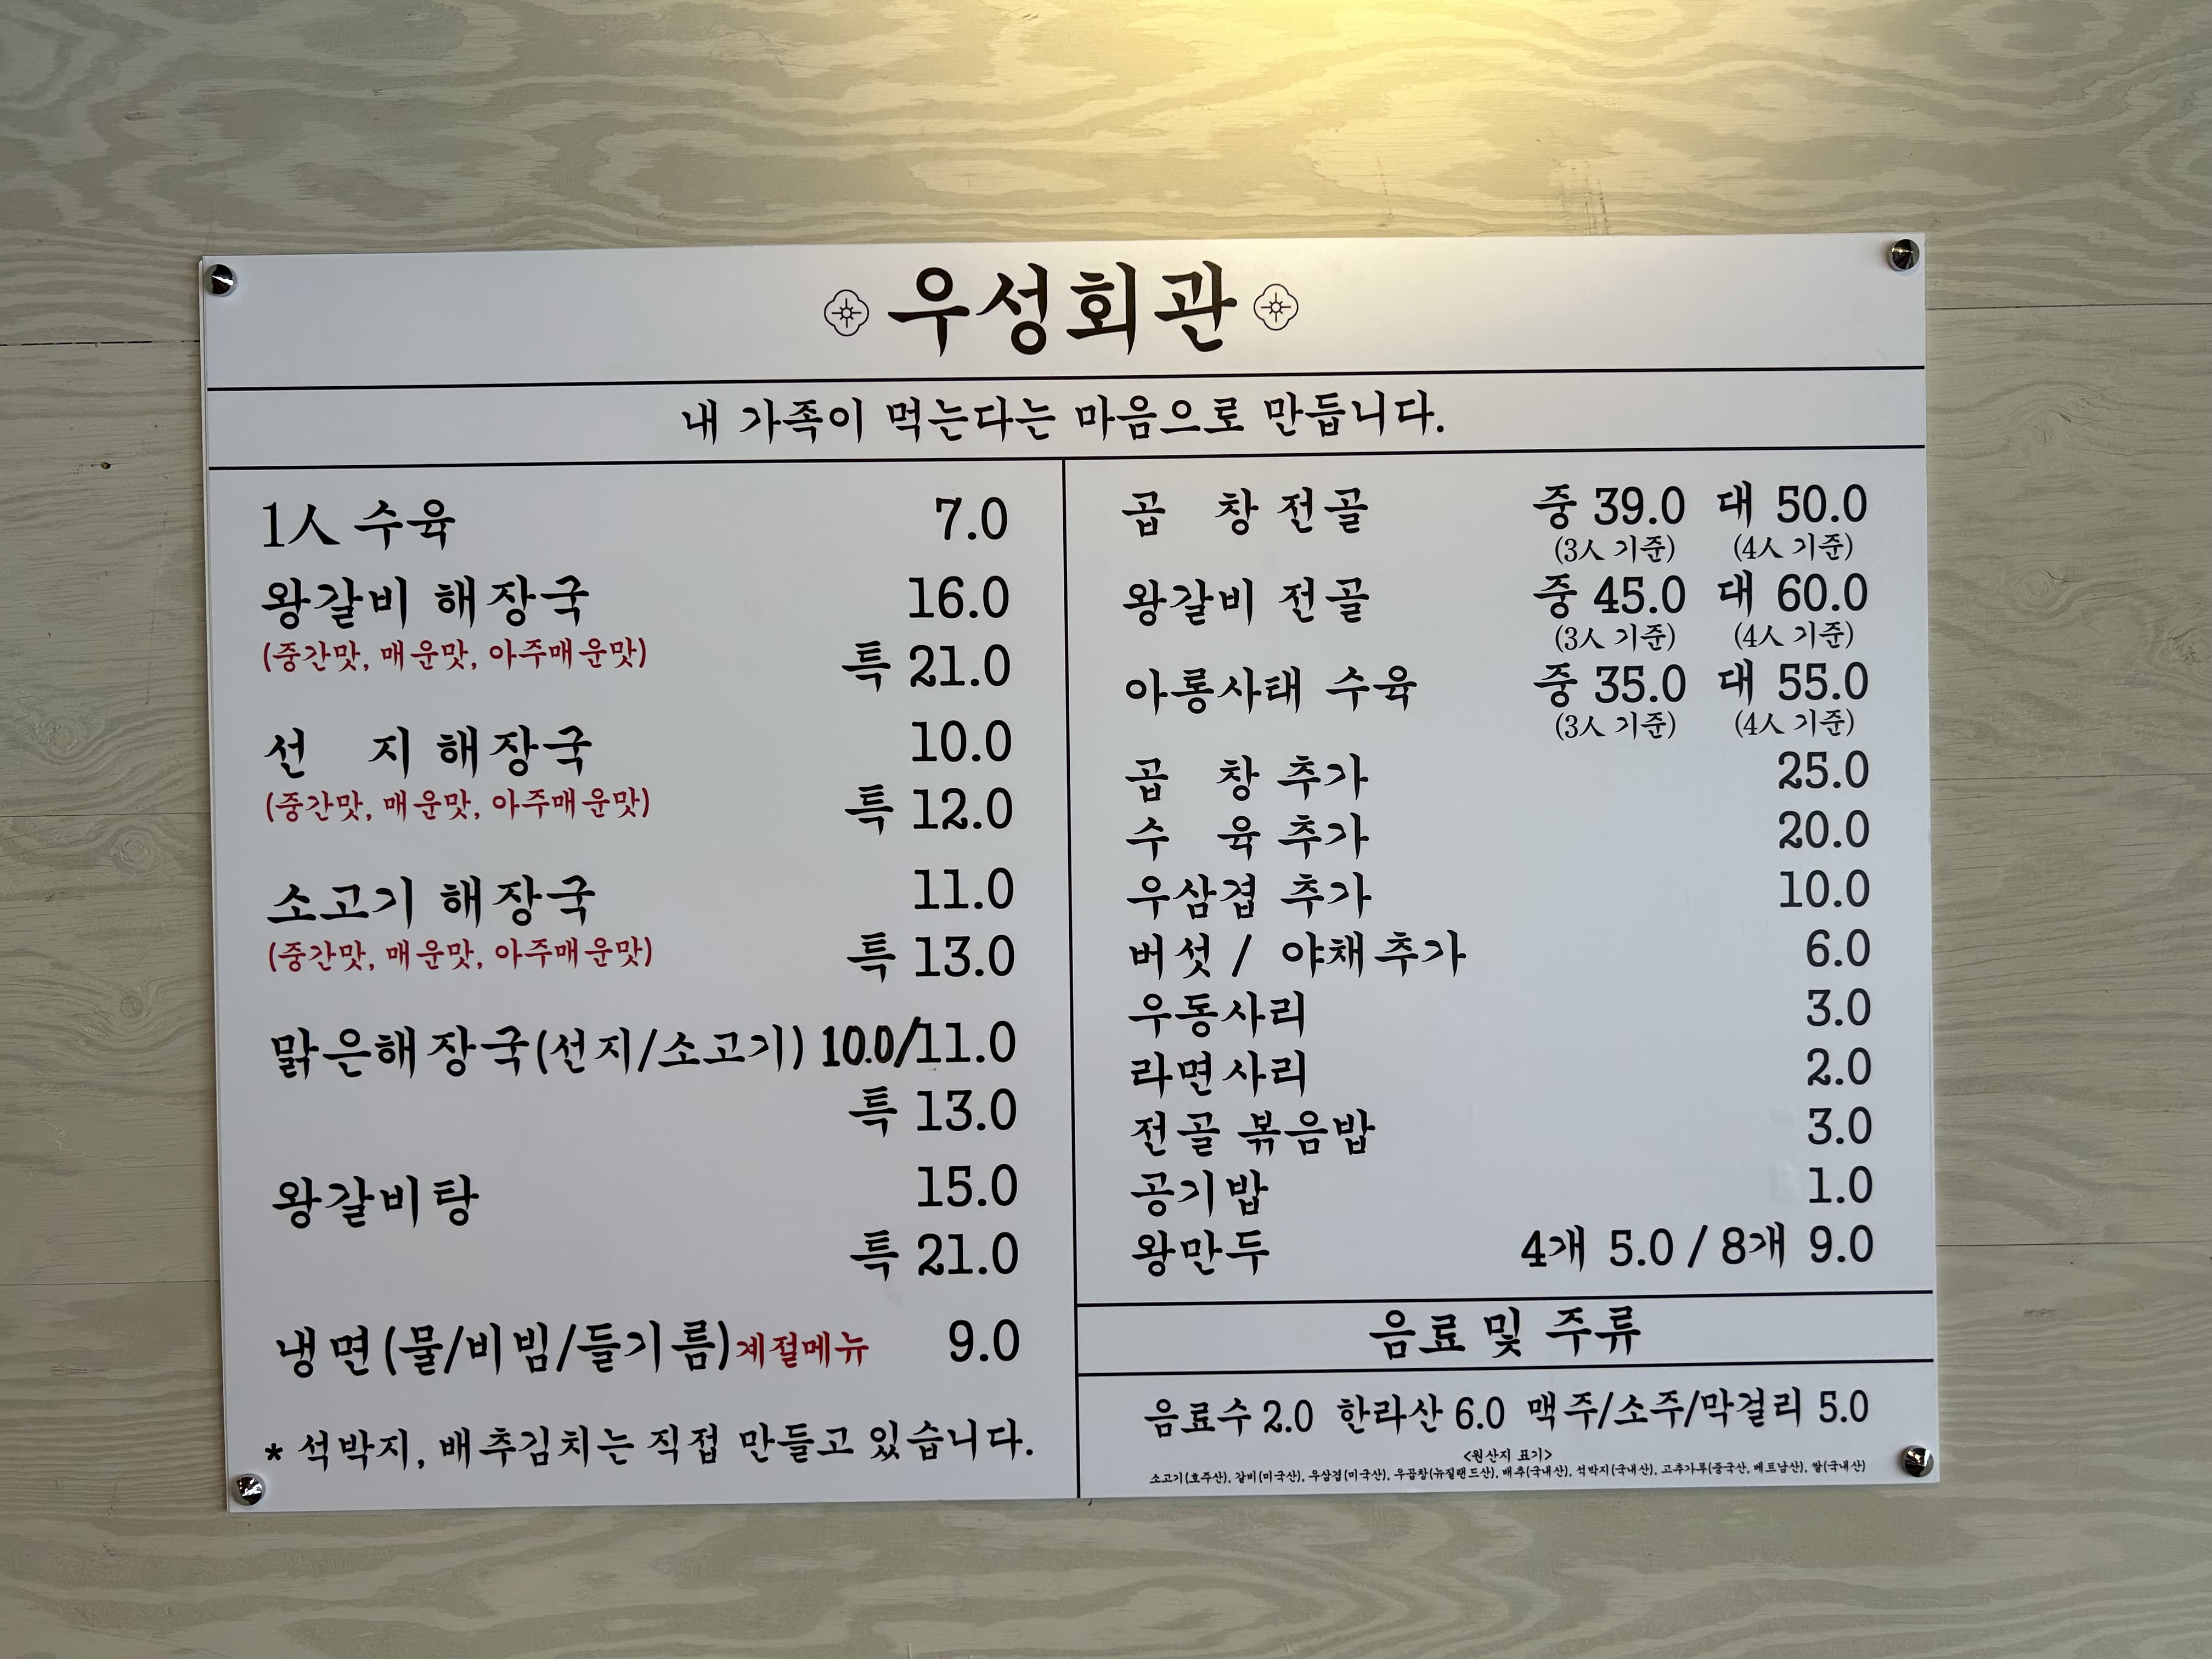 우성회관
내 가족이 먹는다는 마음으로 만듭니다.
1人 수육 7.0
왕갈비 해장국 16.0
(중간맛, 매운맛, 아주매운맛) 특 21.0
선 지 해장국 10.0
(중간맛, 매운맛, 아주매운맛) 특 12.0
소고기 해장국 11.0
(중간맛, 매운맛, 아주매운맛) 특 13.0
맑은해장국(선지/소고기) 10.0/11.0
특 13.0
왕갈비탕 15.0
특 21.0
냉면(물/비빔/들기름)계절메뉴 9.0
* 석박지, 배추김치는 직접 만들고 있습니다.
곱 창 전골 중 39.0 대 50.0
(3人 기준) (4人 기준)
왕갈비 전골 중 45.0 대 60.0
(3人 기준) (4人 기준)
아롱사태 수육 중 35.0 대 55.0
(3人 기준) (4人 기준)
곱 창 추가 25.0
수 육 추가 20.0
우삼겹 추가 10.0
버섯 / 야채추가 6.0
우동사리 3.0
라면사리 2.0
전골 볶음밥 3.0
공기밥 1.0
왕만두 4개 5.0 / 8개 9.0
음료 및 주류
음료수 2.0 한라산 6.0 맥주/소주/막걸리 5.0
<원산지 표기>
소고기(호주산), 갈비(미국산), 우삼겹(미국산), 우곱창(뉴질랜드산), 배추(국내산), 석박지(국내산), 고추가루(중국산, 베트남산), 쌀(국내산)